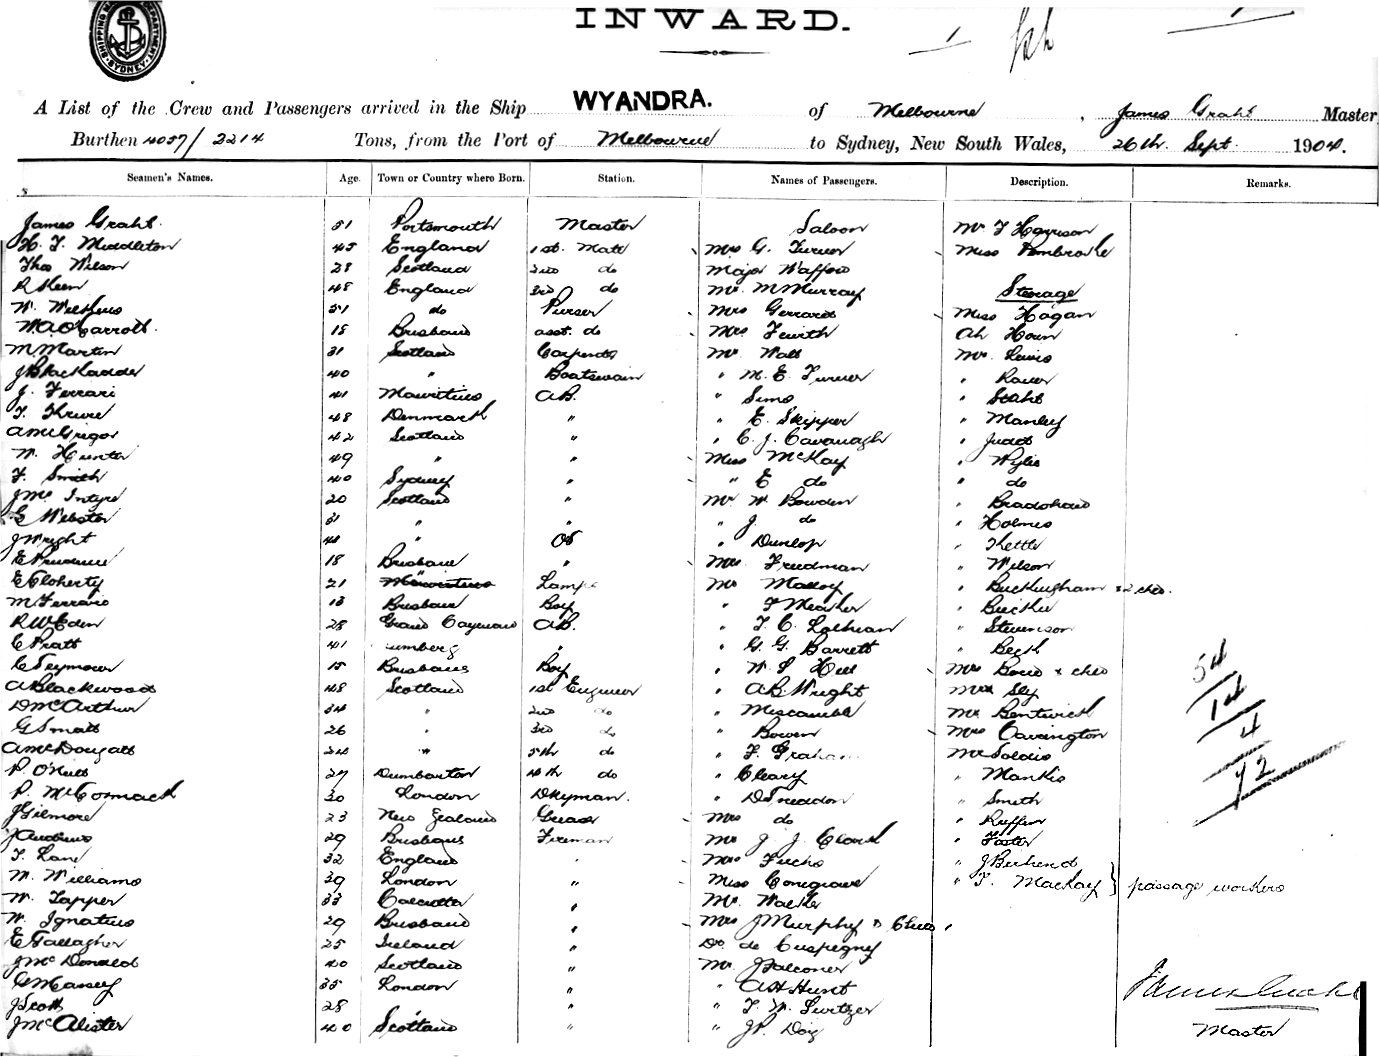 SHIPPING MASTER'S DEPARTMENT SYDNEY
INWARD.
A List of the Crew and Passengers arrived in the Ship WYANDRA. of Melbourne, James Grahl Master
Burthen 4057/2214 Tons, from the Port of Melbourne to Sydney, New South Wales, 26th. Sept. 1904.
Seamen's Names. Age. Town or Country where Born. Station. Names of Passengers. Description. Remarks.
James Grahl. 51 Portsmouth Master Saloon Mr T Harrison
H. T. Middleton 45 England 1st. Mate Mrs G. Turner Miss Pembroke
Thos Wilson 28 Scotland 2nd do Major Wafford
R Keen 48 England 3rd do Mr. M Murray Steerage
W. 51 do Purser Mrs Gerrard Miss Hagan
W A O'Carroll. 18 Brisbane asst. do Mrs Ah
M Martin 31 Scotland Carpenter Mr. Wall Mr. Lewis
J Blackadder 40 " Boatswain " M. E. Turner "
J. Ferrari 41 Mauritius AB. " Sims " Stahl
T. 48 Denmark " " E. Skipper " Manley
A McGregor 42 Scotland " " C. J. Cavanagh " Judd
W. Hunter 49 " " Miss McKay " Wylie
F. Smith 40 Sydney " " E do " do
J Mc Intyre 20 Scotland " Mr W Bowden " Bradshaw
G Webster 31 " " " J do " Holmes
J Wright " OS " Dunlop " Kettle
E Prudence 18 Brisbane " Mrs Freedman " Wilson
E Cloherty 21 Mauritius Lamps Mr Malloy " Buckingham & 2 chd.
M Ferrari 13 Brisbane Boy " T Meaker "
R W Eden 28 Grand Cayman AB. " T. C. Lothian " Stevenson
C Pratt 41 " G. G. Barrett " Beck
C Seymour 15 Brisbane Boy " W. L. Hill Mrs & chd
A Blackwood 48 Scotland 1st Engineer " A B Wright Sly
D McArthur 34 " 2nd do " Miscamble Mr Bentwich
G Small 26 " 3rd do " Bowen Mrs Cavington
A McDougall 24 " 5th do " F. Graham Mr Saldis
P. O'Neill 27 Dumbarton 4th do " Cleary " Mankis
P. McCormack 30 London Dkyman. " D Sneddon " Smith
J Gilmore 23 New Zealand Greaser Mrs do " Ruffin
J Andrews 29 Brisbane Fireman Mr J. J. Clark " Foster
T. Lane 32 England " Mrs Fuchs " J Behrend
W. Williams 39 London " Miss Conegrave " T. Mackay } passage workers
W. Tapper 33 Calcutta " Mr. Walker
W. Ignatius 29 Brisbane " Mrs J Murphy & Child
E Gallagher 25 Ireland " Dr. de Crespigny
J Mc Donald 40 Scotland " Mr. J Falconer
G Massey 35 London " " A H Hunt
J Scott 28 " " T. W. Switzer
J McAlister 40 Scotland " " J. P. Doig
54
14
4
72
James Grahl
Master